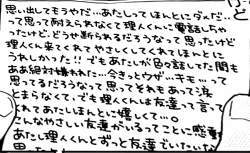 思い出してもうやだ…あたしってほんとにダメだ…
って思って耐えられなくて理人くんに電話しちゃ
ったけど、どうせ断られるだろうなって思ってたけど
理人くん来てくれてやさしくしてくれてほんとに
うれしかった!!でもあたしが色々話してた間も
ああ絶対嫌われた…今きっとウザ…キモ…って
思ってるだろうなって思ってそれもあって涙
とまらなくて、でも理人くんは友達って言って
くれてあたしほんとに嬉しくて…。
こんなやさしい友達がいるってことに感動
あたし理人くんとずっと友達でいたいな